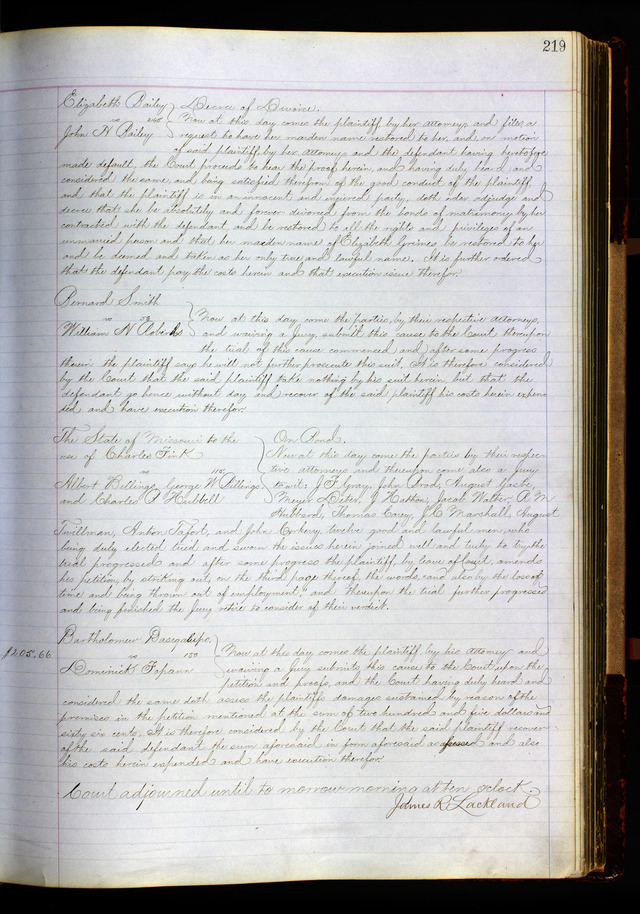 219
Elizabeth Bailey } Decree of Divorce.
vs
John H Bailey } Now at this day comes the plaintiff by her attorney and files a
request to have her maiden name restored to her, and on motion
of said plaintiff, by her attorney and the defendant having heretofore
made default, the Court proceeds to hear the proof herein, and having duly heard and
considered the same and being satisfied therefrom of the good conduct of the plaintiff
and that the plaintiff is an innocent and injured party, doth oder adjudge and
decree that she be absolutely and forever divorced from the bonds of matrimony by her
contracted with the defendant and be restored to all the rights and privileges of an
unmarried person and that her maiden name of Elizabeth Grimes be restored to her
and be deemed and taken as her only true and lawful name. It is further ordered
that the defendant pay the costs herein and that execution issue therefor.
Bernard Smith
vs
William N Roberts } Now at this day come the parties, by their respective attorneys,
and waiving a Jury, submit this cause to the Court thereupon
the trial of this cause commenced and after some progress
therein the plaintiff says he will not further prosecute this suit. It is therefore considered
by the Court that the said plaintiff take nothing by his suit herein but that the
defendant go hence without day and recover of the said plaintiff his costs herein expen
ded and have execution therefor.
The State of Missouri to the } On Bond.
use of Charles Fink } Now at this day come the parties by their respec
vs 115 tive attorneys and thereupon come also a Jury
Albert Billings, George W Billings to wit: J F Gray, John Brod, August Gast,
and Charles P Hubbell Meyer Liken, J Hatton, Jacob Walter, A M
Hubbard, Thomas Corey, J C Marshall, August
Twillman, Anton Tafort, and John Corkery, twelve good and lawful men, who
being duly elected tried and sworn the issues herein joined well and truly to try the
trial progressed and after some progress the plaintiff, by leave of Court, amends
his petition, by striking out, on the third page thereof, the words, "and also by the loss of
time and being thrown out of employment," and thereupon the trial further progresses
and being finished the Jury retire to consider of their verdict.
Bartholomew Dasegalipo,
$205.66 vs 155 } Now at this day comes the plaintiff, by his attorney and
Dominick Fapann } waiving a Jury submits this cause to the Court upon the
petition and proofs, and the Court having duly heard and
considered the same doth assess the plaintiffs damages sustained by reason of the
premises in the petition mentioned at the sum of two hundred and five dollars and
sixty six cents. It is therefore considered by the Court that the said plaintiff recover
of the said defendant the sum aforesaid in form aforesaid assessed and also
his costs herein expended and have execution therefor.
Court adjourned until to morrow morning at ten o'clock.
James R. Lackland